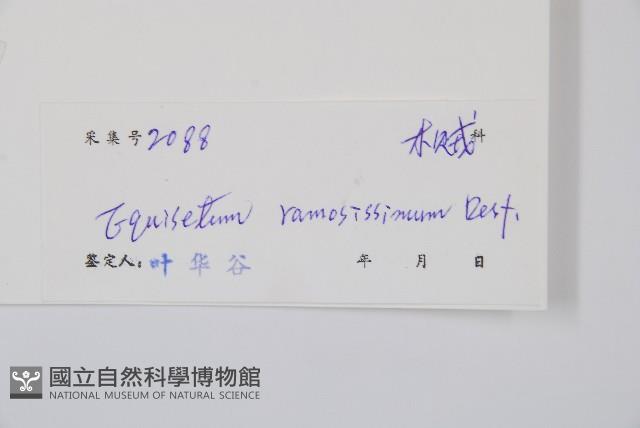 采集号 2088 木贼科
Equisetum ramosissimum Desf.
鉴定人：叶华谷 年 月 日
國立自然科學博物館
NATIONAL MUSEUM OF NATURAL SCIENCE